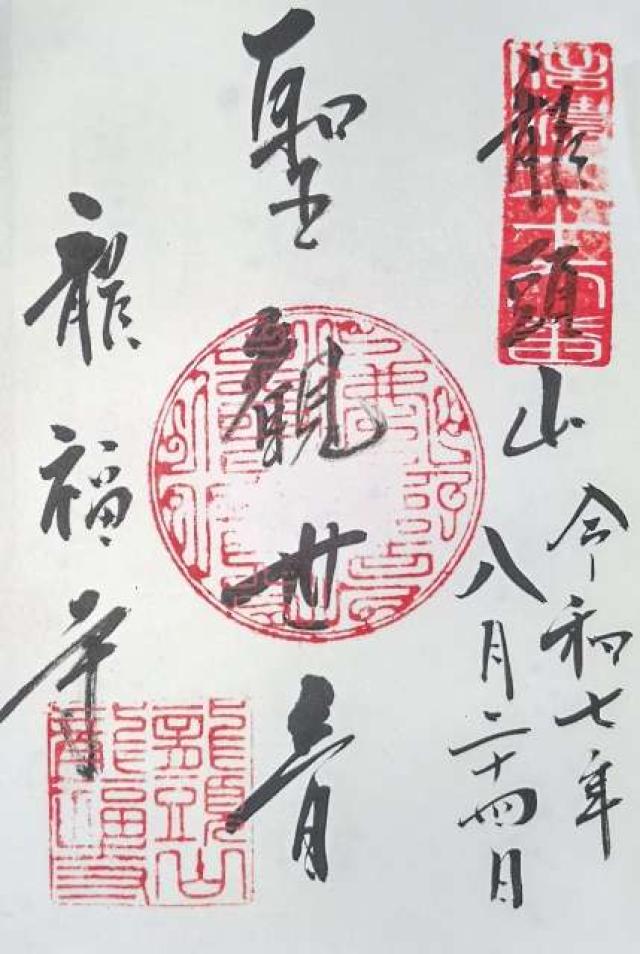 龍頭山
令和七年
八月二十四日
聖観世音
龍福寺
龍頭山
龍福寺